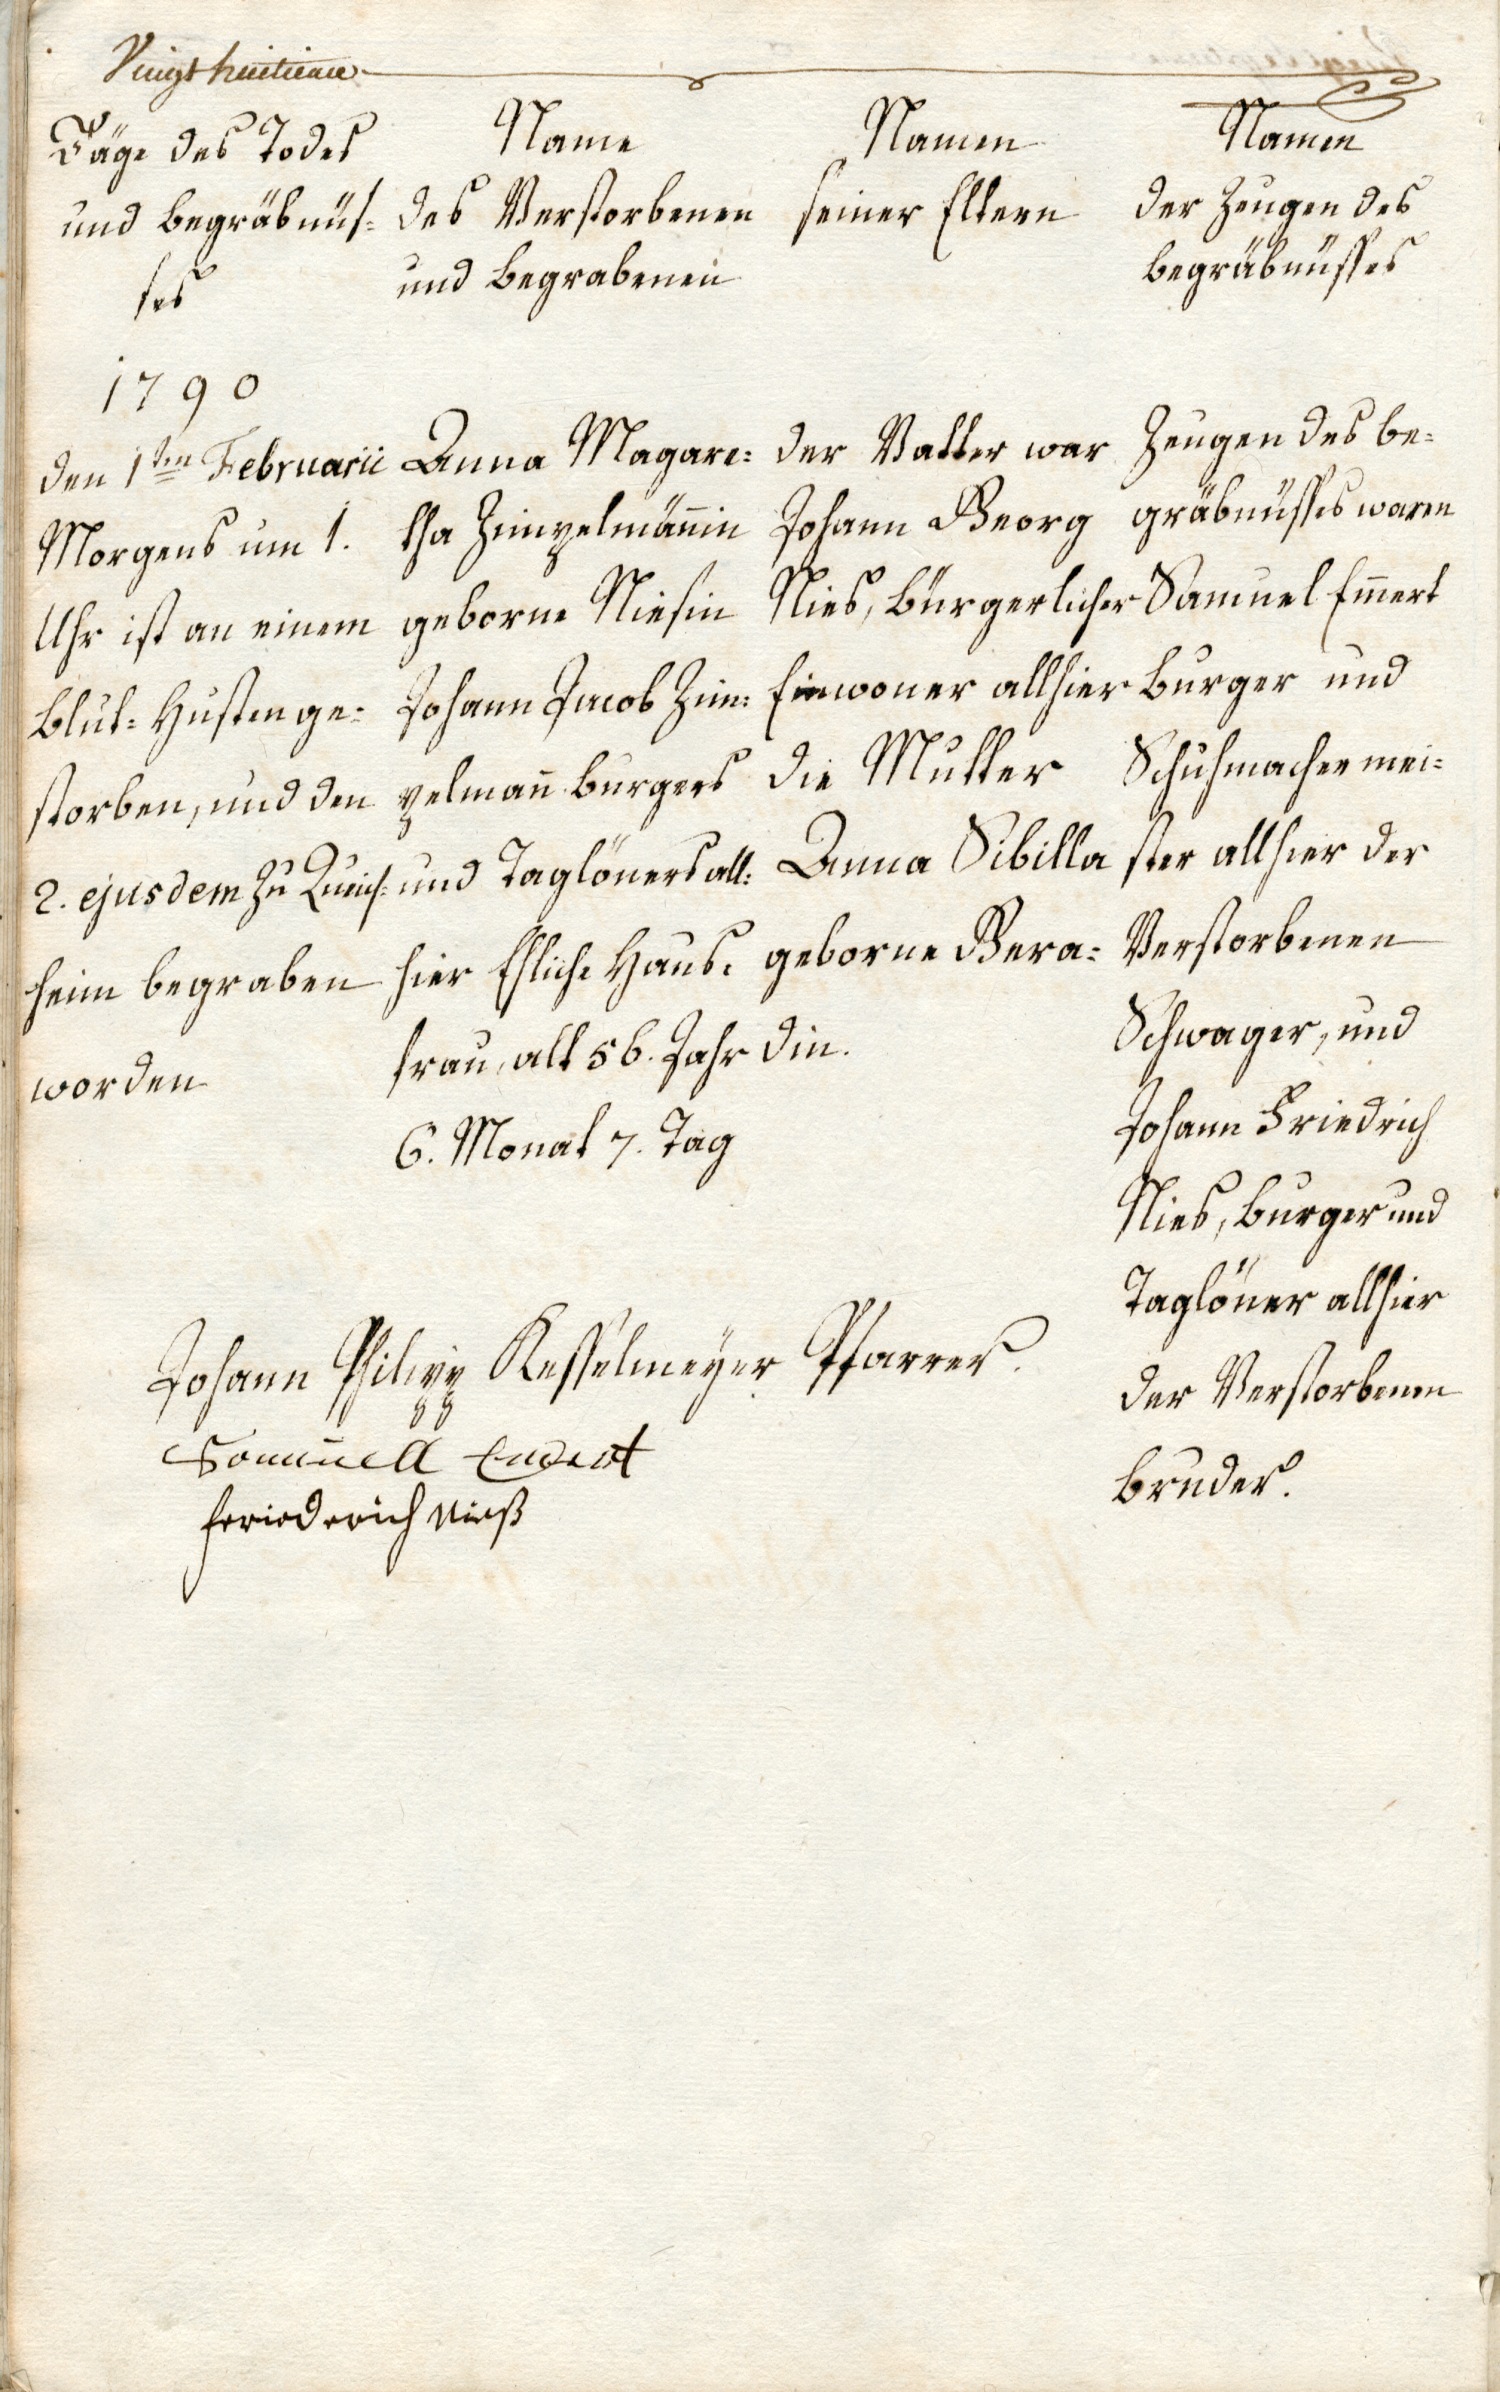 Vingt huitieme
Täge des Todes
und Begräbnüs=
ses
Name
des Verstorbenen
und Begrabenen
Namen
seiner Eltern
Namen
der Zeugen des
Begräbnüsses
1790
den 1ten Februarii
Morgens um 1.
Uhr ist an einem
Blut=Husten ge=
storben, und den
2. ejusdem zu Queich=
heim begraben
worden
Anna Magare=
tha Zimpelmännin
geborne Niesin
Johann Jacob Zim=
pelmann Burgers
und Taglöners all=
hier Ehliche Haus=
frau, alt 56. Jahr
6. Monat 7. Tag
der Vatter war
Johann Georg
Nies, bürgerlicher
Einwoner allhier
die Mutter
Anna Sibilla
geborne Gera=
din.
Zeugen des Be=
gräbnüsses waren
Samuel Emmert
Burger und
Schuhmacher mei=
ster allhier der
Verstorbenen
Schwager, und
Johann Friedrich
Nies, Burger und
Taglöner allhier
der Verstorbenen
Bruder.
Johann Philipp Kesselmeyer Pfarrer.
Samuell
Feriederich Nieß